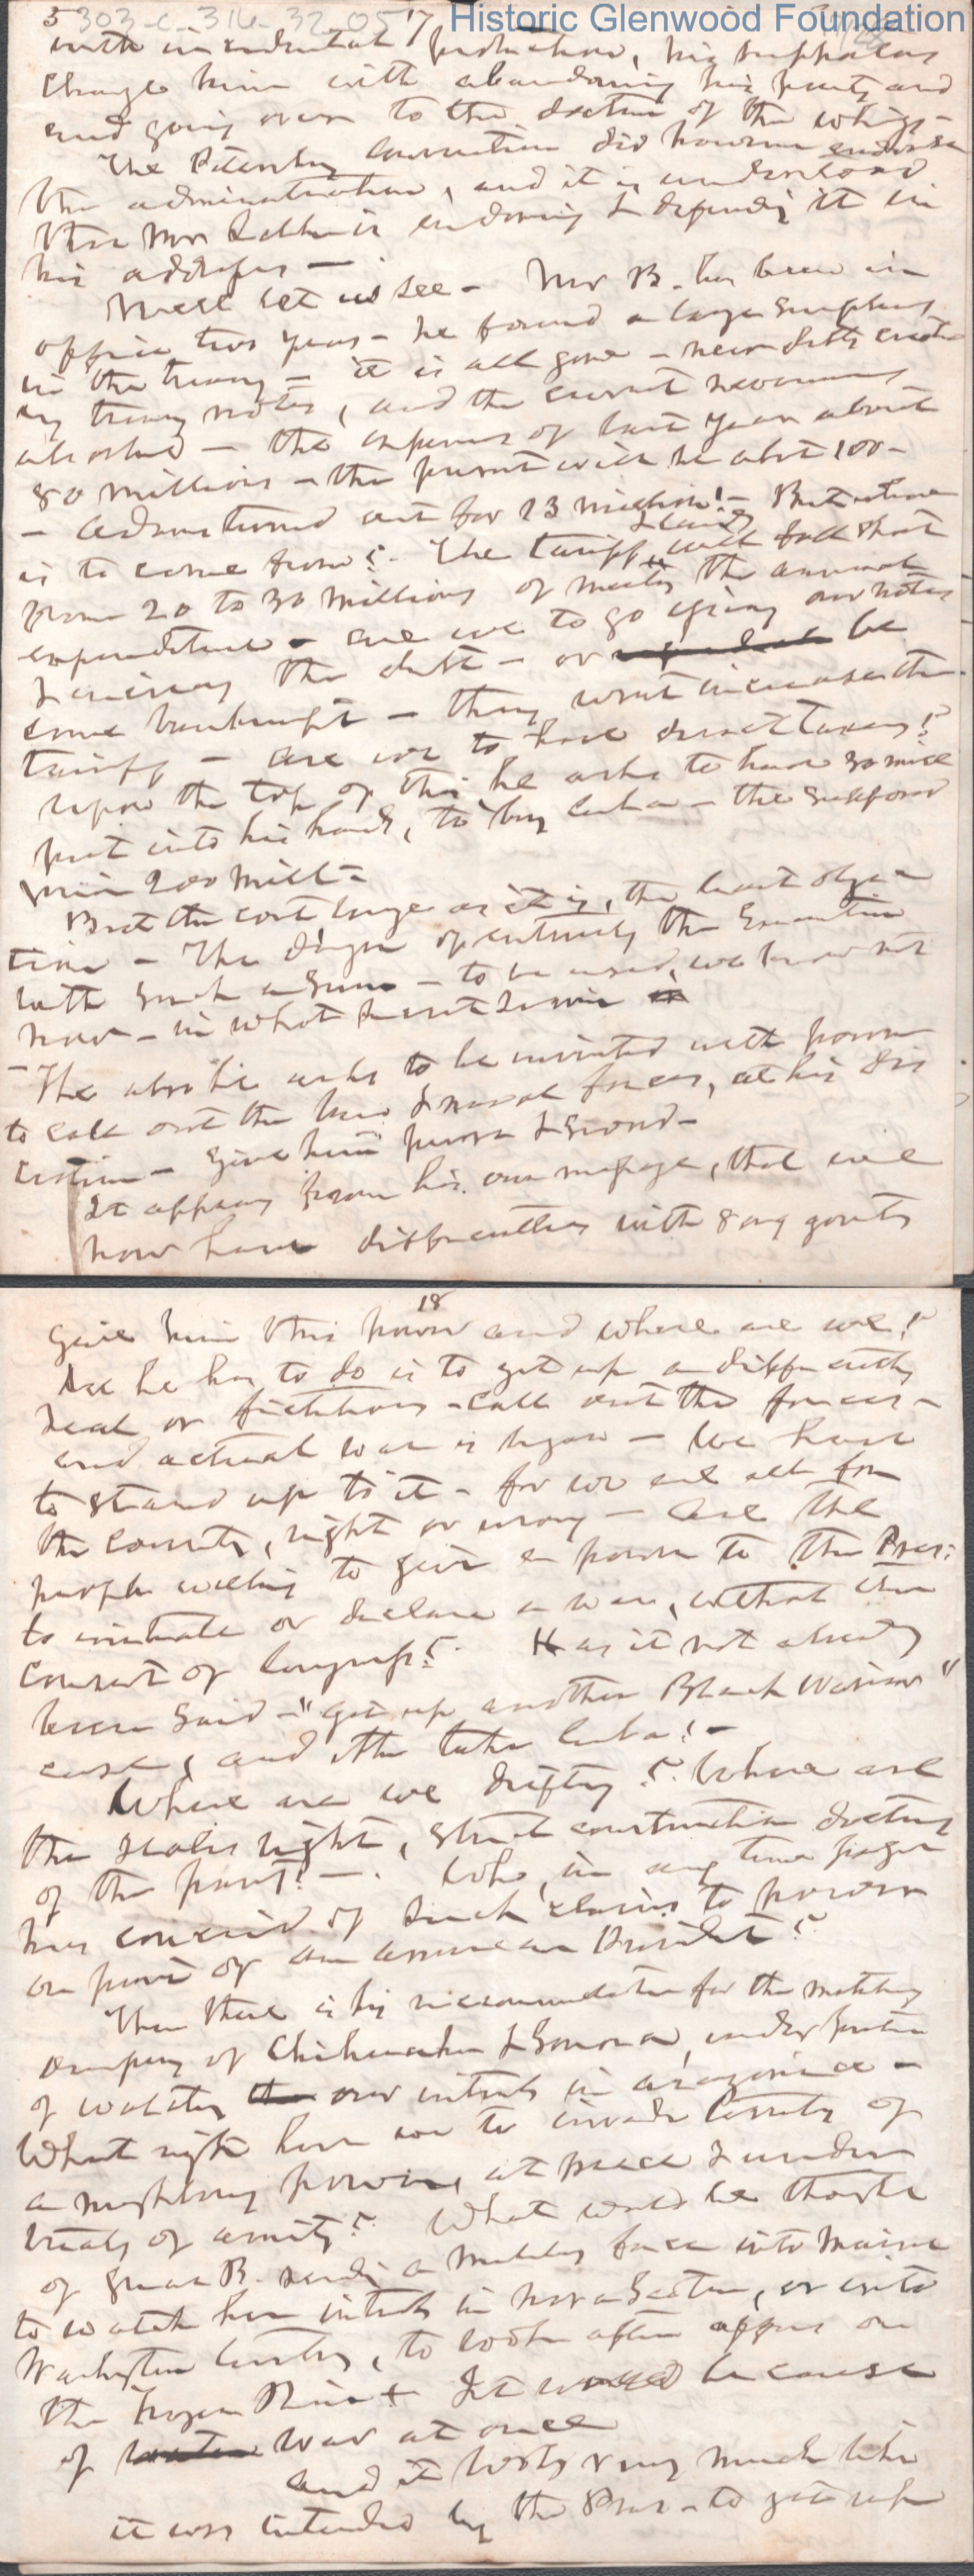 Historic Glenwood Foundation
5 303-c-316-32-05 17
with incidental protection, his supporters
charge him with abandoning his party and
and going over to the doctrine of the whigs -
The Petersburg convention did however endorse
the administration, and it is understood
that Mr Letcher is endorsing & defending it in
his addresses -
Well let us see - Mr B. has been in
office two years - he found a large surplus
in the treasy - it is all gone - new debts
by treasy notes, and the current revenues
absorbed - the expenses of last year about
80 millions - the present will be abot 100 -
- out for 73 millions! -
is to come from? The tariff & lands will fall short
from 20 to 30 millions of meeting the annual
expenditure - are we to go giving our notes
& increasing the debt - or be
come bankrupt - they wont increase the
tariff - are we to have direct taxes?
upon the top of this he asks to have 30 mill
put into his hands, to buy Cuba - the
200 mill -
But the cost large as it is, the least objec
tion - The danger of entrusting the Executive
with such a sum - to be used, we know not
how - in what
- The also he asks to be invested with power
to call out the land & naval forces, at his dis
cretion - give him purse & sword -
It appears from his own message, that we
now have difficulties with 8 govts
18
give him this power and where are we!
All he has to do is to get up a difficulty
real or fictitious - call out the forces -
and actual war is begun - We have
to stand up to it - for we are all for
the country, right or wrong - are the
people willing to give a power to the Pres:
to initiate or declare a war, without the
consent of Congress? Has it not already
been said - "get up another Black Warrior"
case, and then take Cuba! -
Where are we drifting? Where are
the states right, strict construction doctrines
of the party! - . Who, in any time
has conceived of such claims to power
on part of an American President?
Then there is his reccomendation for the military
occupancy of Chihuahua & Sonora, under
of watching our interests in Arizonia -
What right have we to invade territy of
a neighboring power, at peace & under
treaty of amity? What would be thought
of Great B. sendig a military force into Maine
to watch her interests in Nova Scotia, or into
Washington Territy, to look after affairs on
the Frazer River It would be cause
of war at once
and it looks very much like
it was intended by the Pres - to get up